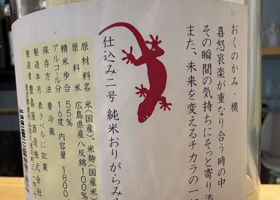 おくのかみ・機
喜怒哀楽が重なり合う時の中
その瞬間の気持ちにそっと寄り添
また、未来を変えるチカラの一
仕込み二号 純米おりがらみ
原材料名 米(国産)、米麹(国産米
原料米 広島県産八反錦100%
精米歩合 55%
アルコール分 16度 内容量 1800
保存方法 要冷蔵
製造年月 ラベルに記載